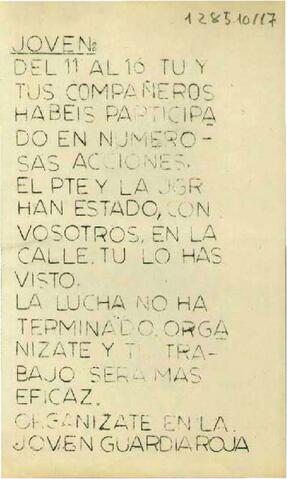 128510/17
JOVEN:
DEL 11 AL 16 TU Y
TUS COMPAÑEROS
HABEIS PARTICIPA
DO EN NUMERO-
SAS ACCIONES.
EL PTE Y LA JGR
HAN ESTADO, CON
VOSOTROS, EN LA
CALLE. TU LO HAS
VISTO.
LA LUCHA NO HA
TERMINADO. ORGA
NIZATE Y TU TRA-
BAJO SERA MAS
EFICAZ.
ORGANIZATE EN LA
JOVEN GUARDIA ROJA